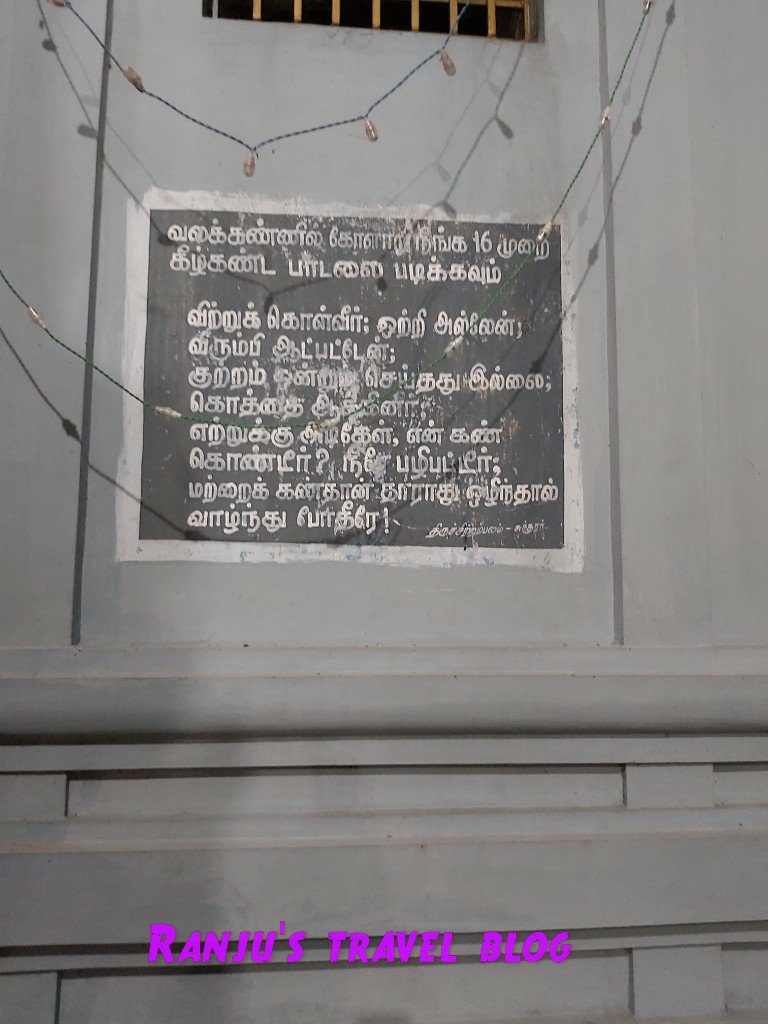 வலக்கண்ணில் கோளாறு நீங்க 16 முறை
கீழ்கண்ட பாடலை படிக்கவும்
விற்றுக் கொள்வீர்; ஒற்றி அல்லேன்;
விரும்பி ஆட்பட்டேன்;
குற்றம் ஒன்றும் செய்தது இல்லை;
கொத்தை ஆக்கினீர்;
எற்றுக்கு அடிகேள், என் கண்
கொண்டீர்? நீரே பழிபட்டீர்;
மற்றைக் கண்தான் தாராது ஒழிந்தால்
வாழ்ந்து போதீரே!
திருச்சிற்றம்பலம் - சுந்தரர்
RANJU'S TRAVEL BLOG